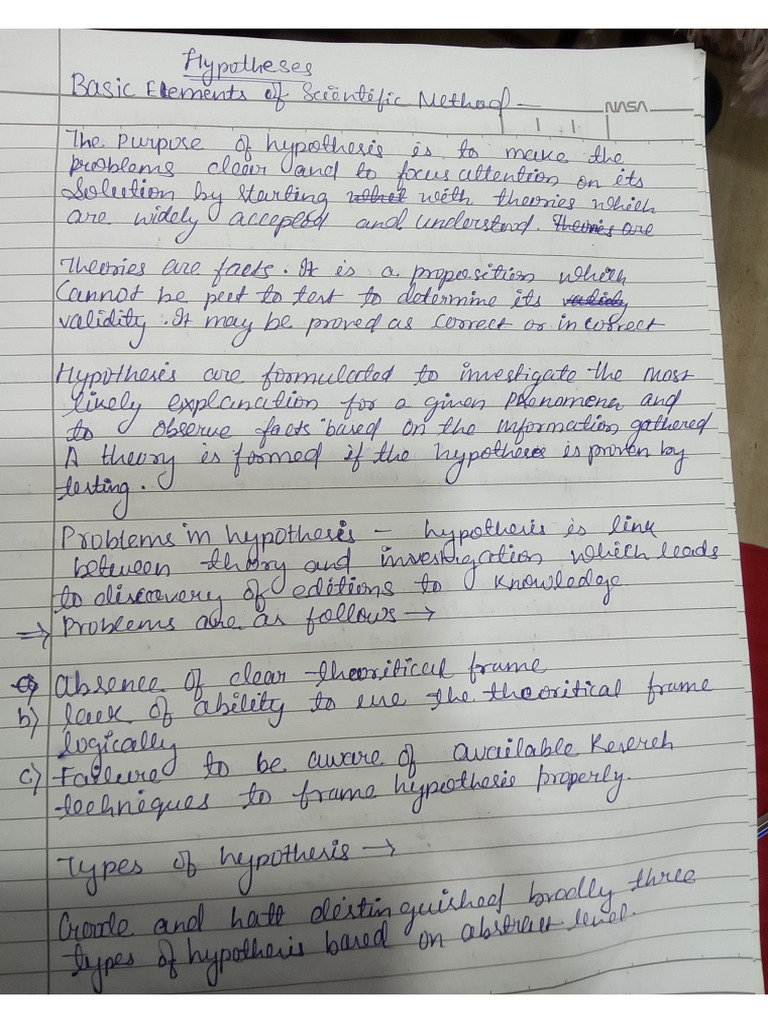 Hypotheses
Basic Elements of Scientific Method -
NASA
The purpose of hypothesis is to make the
problems clear and to focus attention on its
Solution by starting with theories which
are widely accepted and understood. Theories are
Theories are facts. It is a proposition which
Cannot be peet to test to determine its validity
validity. It may be proved as correct or incorrect
Hypothesis are formulated to investigate the most
likely explanation for a given phenomena and
to observe facts based on the information gathered
A theory is formed if the hypothesis is proven by
testing.
Problems in hypothesis - hypothesis is link
between theory and investigation which leads
to discovery of editions to knowledge
⇒ Problems are as follows →
a) Absence of clear theoritical frame
b) lack of ability to use the theoritical frame
logically
c) Failure to be aware of available Reserch
techniques to frame hypothesis properly.
Types of hypothesis →
Goode and hatt distinguished bradly three
types of hypothesis based on abstract level.